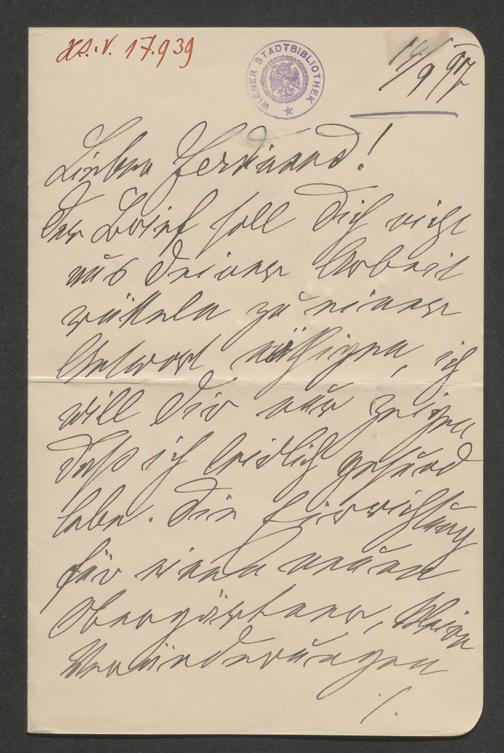 H.I.N. 17.939
WIENER STADTBIBLIOTHEK
14/9 97
Lieber Ferdinand!
Der Brief soll Dich nicht
aus Deiner Arbeit
rütteln zu einer
Antwort nöthigen, ich
will Dir nur zeigen
daß ich leidlich gesund
lebe. Die Einrichtung
für einen neuen
Obergärtner, kleine
Veränderungen
./.